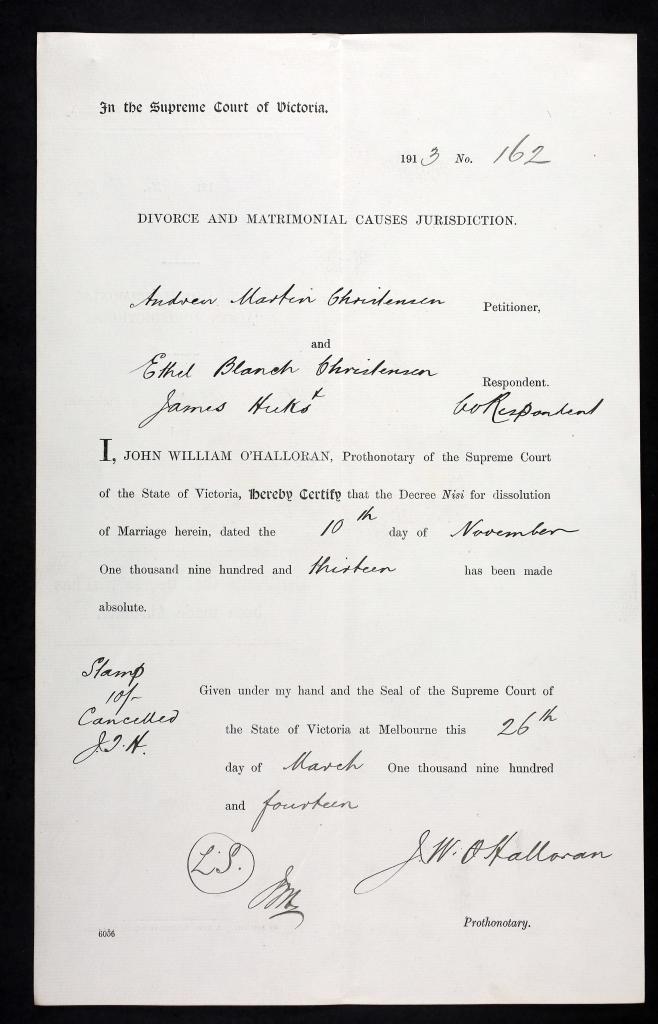 In the Supreme Court of Victoria.
1913 No. 162
DIVORCE AND MATRIMONIAL CAUSES JURISDICTION.
Andrew Martin Christensen Petitioner,
and
Ethel Blanch Christensen Respondent.
James Co Respondent
I, JOHN WILLIAM O'HALLORAN, Prothonotary of the Supreme Court
of the State of Victoria, Hereby Certify that the Decree Nisi for dissolution
of Marriage herein, dated the 10th day of November
One thousand nine hundred and thirteen has been made
absolute.
Stamp
10/-
Cancelled
Given under my hand and the Seal of the Supreme Court of
the State of Victoria at Melbourne this 26th
day of March One thousand nine hundred
and fourteen
L.S.
J. W. O'Halloran
Prothonotary.
6056